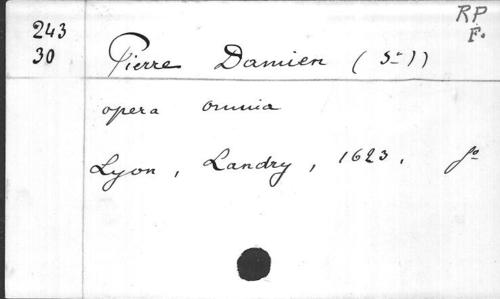 243
30
RP
F.
Pierre Damien (St))
opera omnia
Lyon, Landry, 1623. fo